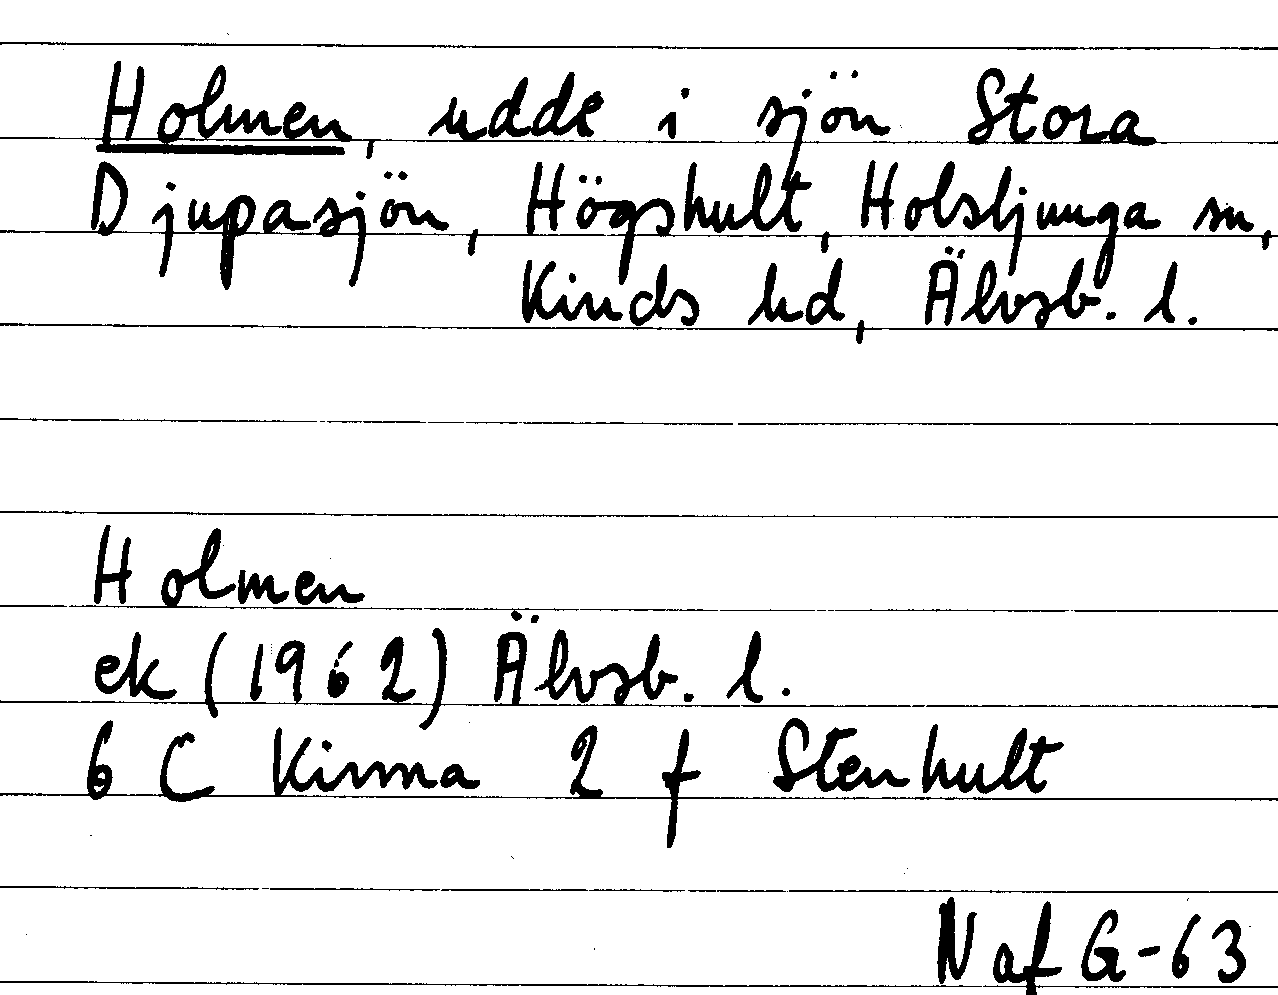 Holmen, udde i sjön Stora
Djupasjön, Högshult, Holsljunga sn,
Kinds hd, Älvsb. l.
Holmen
ek (1962) Älvsb. l.
6 C Kinna 2 f Stenhult
N af G-63